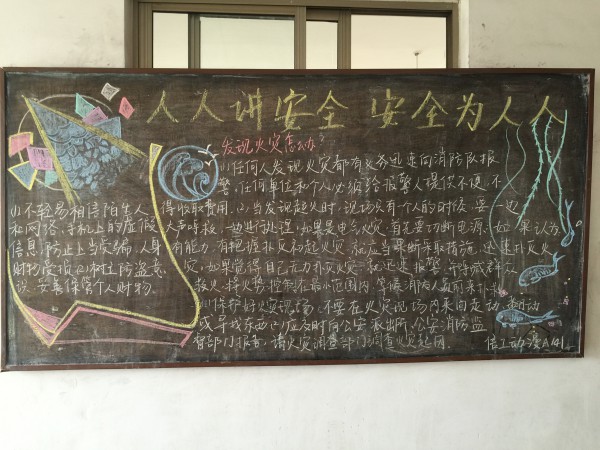 人人讲安全 安全为人人
发现火灾怎么办?
(1)任何人发现火灾都有义务迅速向消防队报
警,任何单位和个人必须给报警人提供不便,不
得收取费用.(2)当发现起火时,现场只有个人的时候,要一边
大声呼救,一边进行处理,如果是电气火灾,首先要切断电源,如果认为
有能力,有把握扑灭初起火灾,就应当果断采取措施,迅速扑灭火
灾,如果觉得自己无力扑灭火灾,就迅速报警,并疏散群众
救火,将火势控制在最小范围内,等候消防人员前来扑救
保护好火灾现场,不要在火灾现场内来回走动,
或寻找东西.应及时向公安派出所,公安消防监
督部门报告,请火灾调查部门调查火灾起因.
(1)不轻易相信陌生人
和网络,手机上的虚假
信息,防止上当受骗,人身
财物受损.(2)树立防盗意
识,妥善保管个人财物.
信工动漫A141